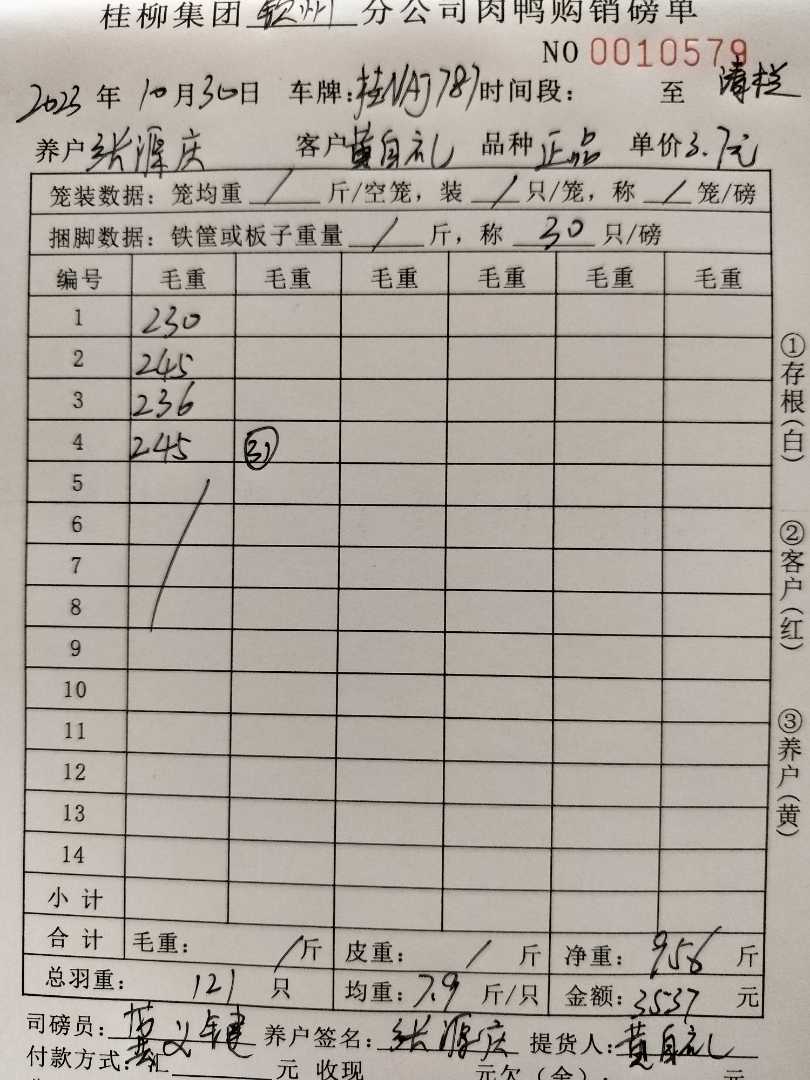 桂柳集团 钦州 分公司肉鸭购销磅单
NO 0010579
2023 年 10 月 30 日 车牌:桂NAJ787 时间段: 至 清栏
养户 张源庆 客户 黄自礼 品种 正品 单价 3.7元
笼装数据: 笼均重 / 斤/空笼, 装 / 只/笼, 称 / 笼/磅
捆脚数据: 铁筐或板子重量 / 斤, 称 30 只/磅
编号 毛重 毛重 毛重 毛重 毛重 毛重
1 230
2 245
3 236
4 245 31
5
6
7
8
9
10
11
12
13
14
小计
合计 毛重: / 斤 皮重: / 斤 净重: 956 斤
总羽重: 121 只 均重: 7.9 斤/只 金额: 3537 元
司磅员: 义健 养户签名: 张源庆 提货人: 黄自礼
付款方式: 汇 元 收现 元欠(余):
①存根(白)
②客户(红)
③养户(黄)